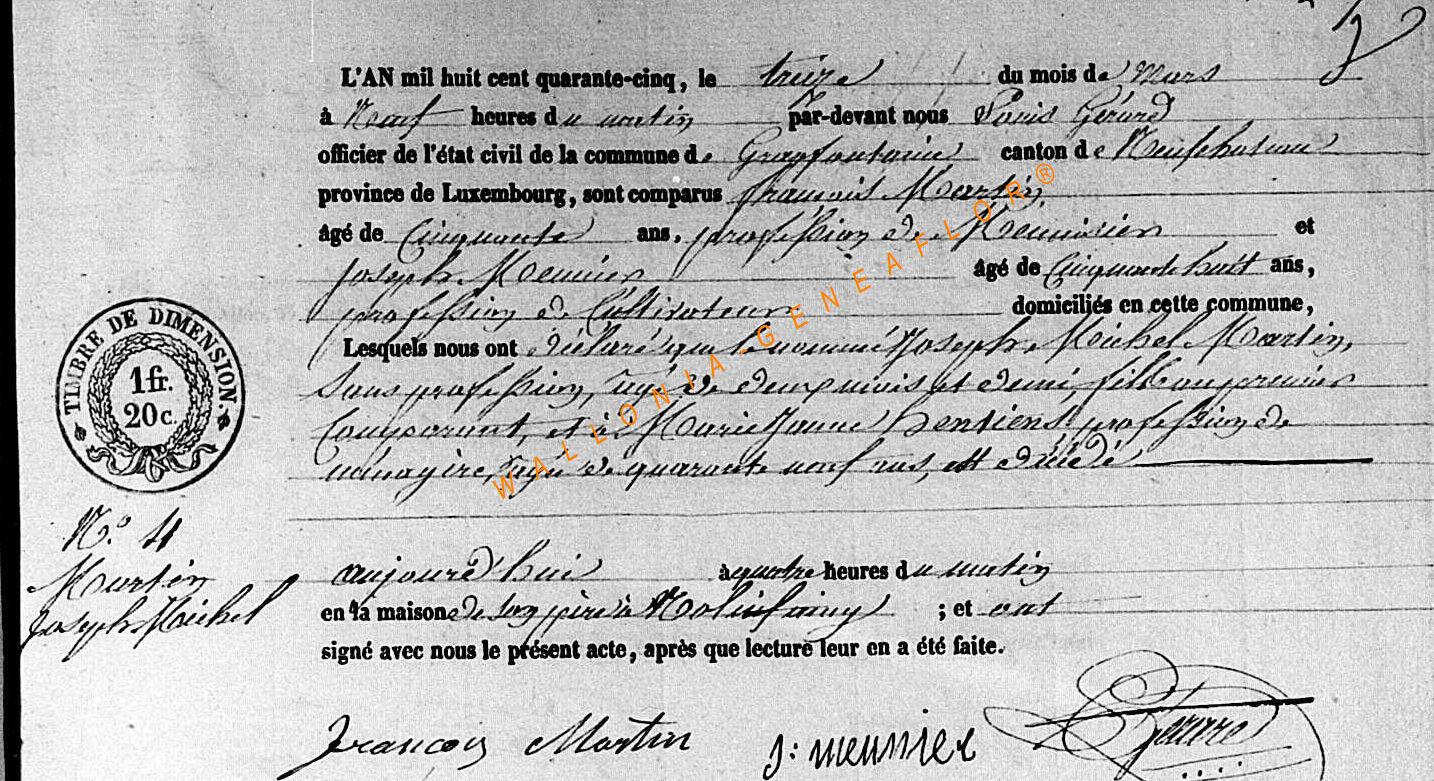 L'AN mil huit cent quarante-cinq, le treize du mois de Mars
à Neuf heures du matin par-devant nous Louis Gérard
officier de l'état civil de la commune de Grapfontaine canton de Neufchateau
province de Luxembourg, sont comparus françois Martin,
âgé de Cinquante ans, profession de Meunier et
joseph Meunier âgé de Cinquante huit ans,
profession de Cultivateur domiciliés en cette commune,
Lesquels nous ont déclaré que le nommé Joseph Michel Martin,
sans profession, agé de deux mois et demi, fils au premier
Comparant, et à Marie Jeanne profession de
ménagère, agée de quarante neuf ans, est décédé
TIMBRE DE DIMENSION.
1 fr.
20 c.
N.° 4
Martin
Joseph Michel
aujourd'hui à quatre heures du matin
en la maison de son père à Molinfaing ; et ont
signé avec nous le présent acte, après que lecture leur en a été faite.
François Martin
j: meunier
Gérard
WALLONIA-GENEAFLOR®